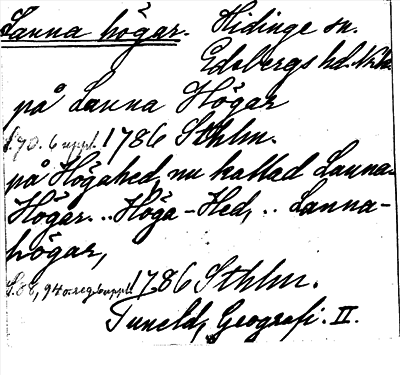 Lanna högar. Hidinge sn.
Edsbergs hd. Nke.
på Lanna Högar
s. 70. 6 uppl. 1786 Sthlm.
på Högahed, nu kallad Lanna-
Högar. .. Höga-Hed, .. Lanna-
högar,
S. 88, 94 o. reg. 6 uppl. 1786 Sthlm.
Tuneld, Geografi. II.